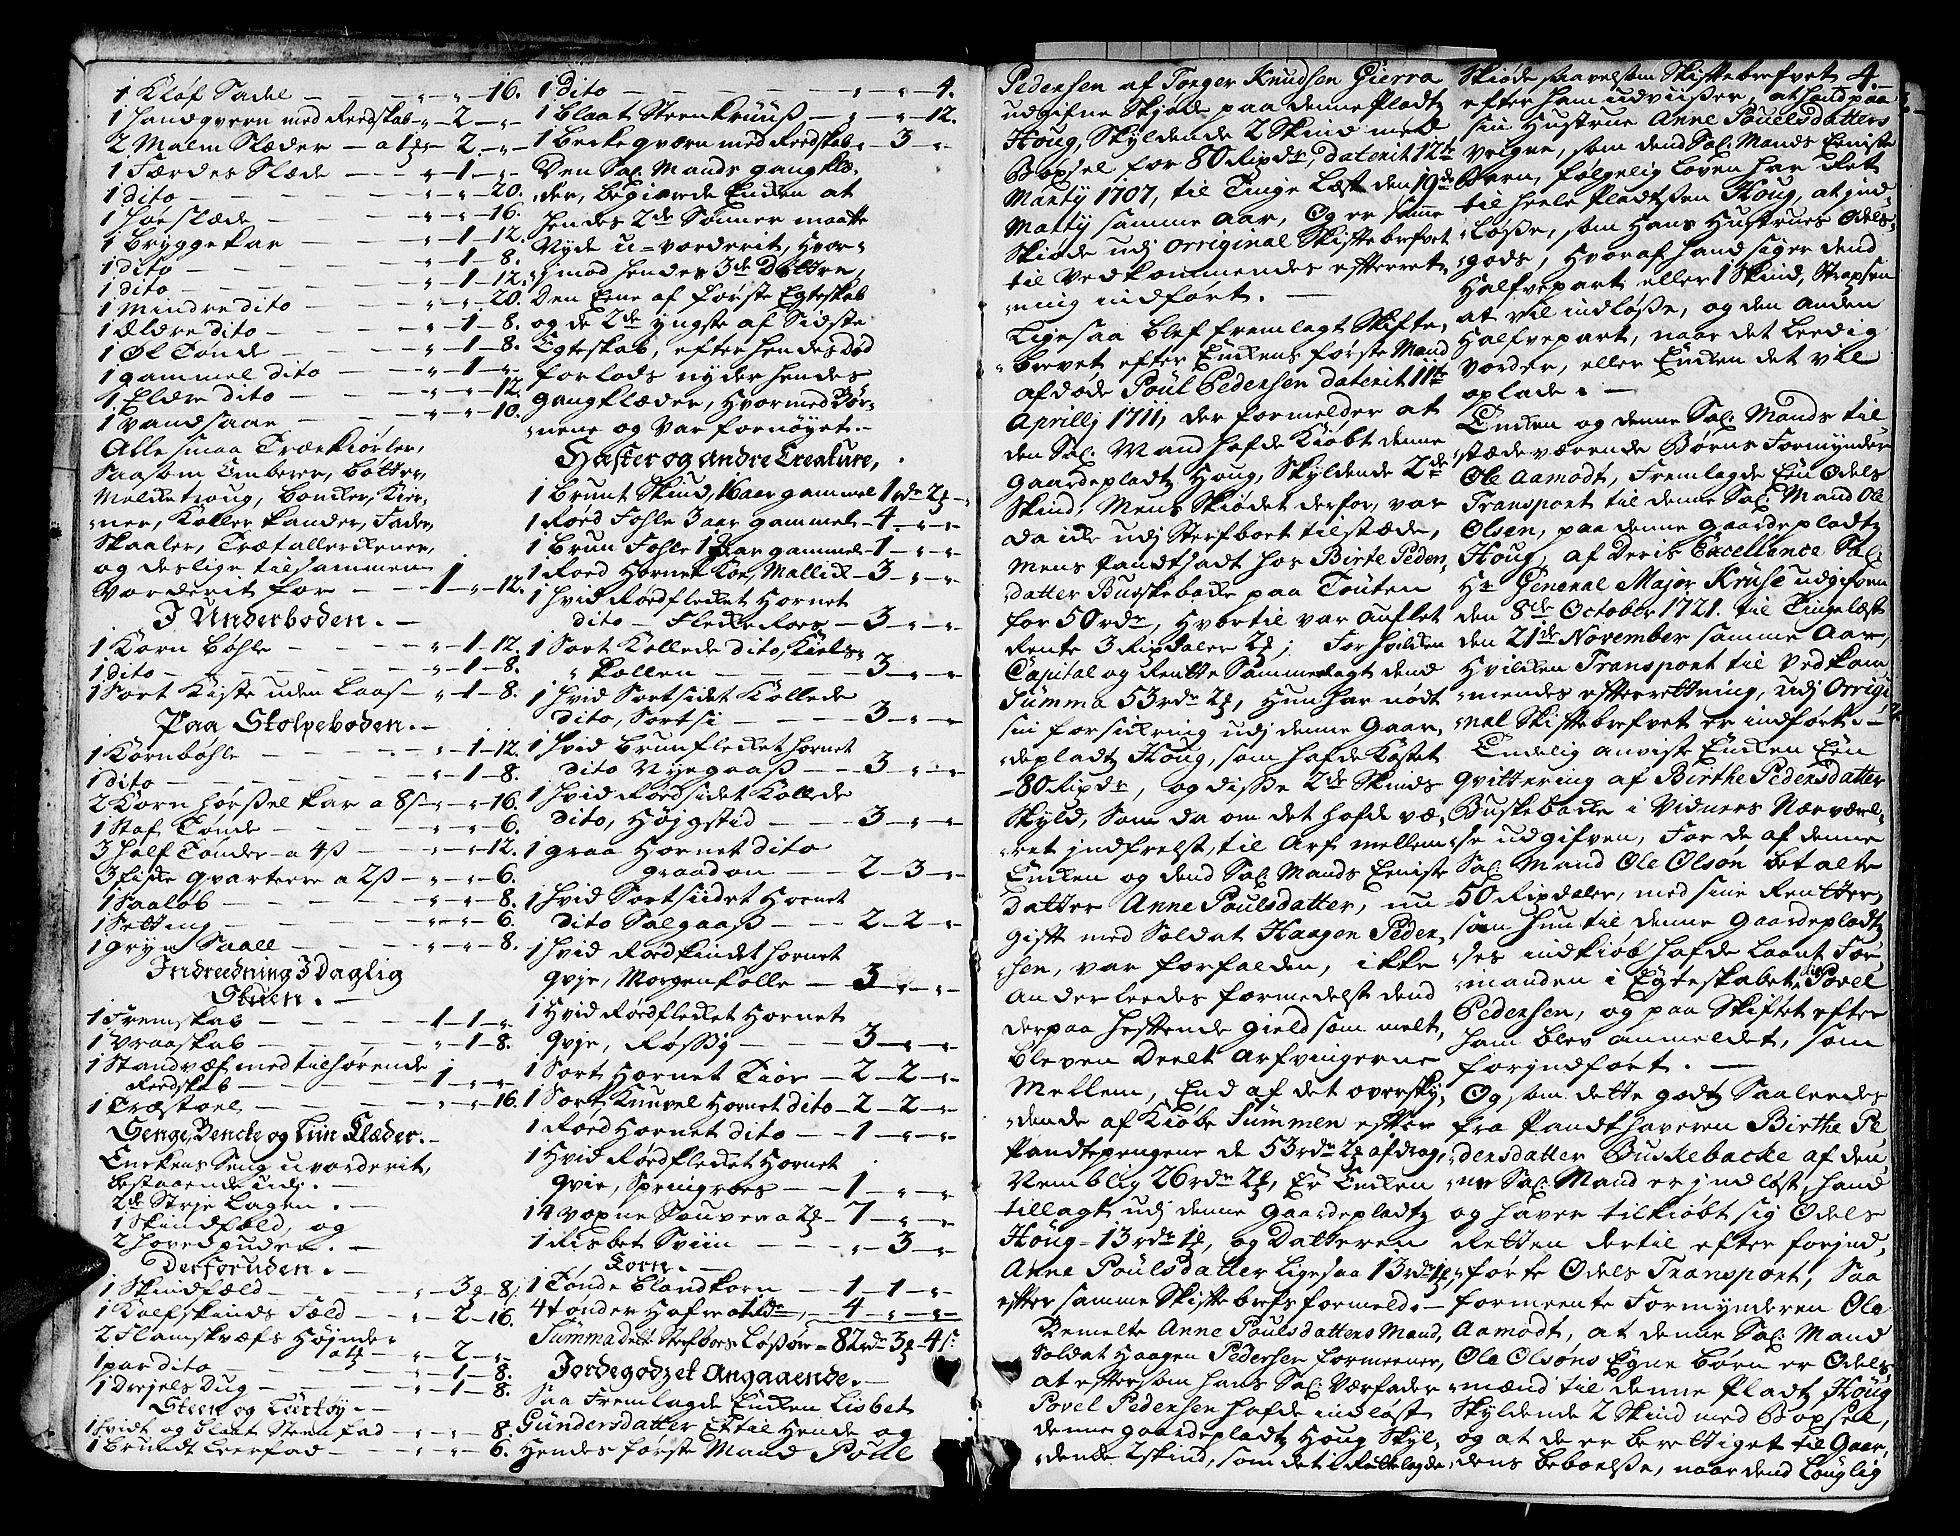 1 Kløf Sadel — — — „ — „ — 16.
1 Handqvern med Reedskab „ — 2 — „
2 Malm Slæder — a 1 ₰ — 2 — „
1 Færdes Slæde — — „ — 1 — „
1 dito — — — — „ — „ — 20.
1 Høeslæde — — — „ — „ — 16.
1 Bryggekar — — — „ — 1 — 12.
1 dito — — — — „ — 1 — 8.
1 dito — — — — „ — 1 — 12.
1 Mindre dito — — — „ — „ — 20.
1 Ældre dito — — — „ — 1 — 8.
1 Øl Tønde — — — „ — 1 — 8.
1 gammel dito — — — „ — 1 — „
1 Eldre dito — — — „ — „ — 12.
1 Vandsaae — — — „ — „ — 10.
Alle smaa Træekiørler,
Saasom Emberer, Bøtter,
Melketroug, Boncker, Kier-
ner, Koller Kander, Fader,
Skaaler, Træetallerckener,
og deslige tilsammen
Vorderit for — — 1 — „ — 12.
I Underboden. —
1 Korn Bøhle — — — „ — 1 — 12.
1 dito — — — — „ — 1 — 8.
1 Sort Kiste uden Laas — „ — 1 — 8.
Paa Stolpeboden. —
1 Kornbøhle — — — „ — 1 — 12.
1 dito — — — — „ — 1 — 8.
2 Korn hørssel kar a 8 s — „ — „ — 16.
1 Staf Tønde — — — „ — „ — 6.
3 half Tønder — a 4 ß — „ — „ — 12.
3 fiske qvarteere a 2 ß — „ — „ — 6.
1 Saaløb — — — „ — „ — 8.
1 Setting — — — „ — „ — 6.
1 Gryn Saall — — — „ — „ — 8.
Indreedning I Daglig
Stuen. —
1 Fremskab — — — 1 — 1 — „
1 Vraaskab — — — „ — 1 — 8.
1 Standvæf med tilhørende
Reedskab — — — 1 — „ — „
1 Træstoel — — — „ — „ — 16.
Senge, Bencke og Liin Klæder. —
Enckens Seng uvorderit,
bestaaende udj. —
2de Strje Lagen. —
1 Skindfæld, og
2 Hovedpuder. —
Derforuden. —
1 Skindfæld — — — „ — 3 ₰ 8 s
1 Kalfskinds Fæld — — „ — 2 — 16.
2 Flamskvæfs Høynder
a 1 ₰ — „ — 2 — „
1 par dito — — — „ — 1 — 8.
1 Drejels Dug — — — „ — 1 — 8.
Steen og Leertøy. —
1 hvidt og blaat Steenfad — „ — „ — 8.
1 Bruudt Leerfad — — „ — „ — 6.
1 Dito — — — — „ — „ — 4.
1 blaat Steen Kruuß — „ — „ — 12.
1 Becke qværn med Reedskab „ — 3 — „
Den Sal. Mands gangklæ-
der, begiærde Encken at
hendes 2de Sønner maatte
Nyde u-vorderit, hvor-
imod hendes 3de Døttre,
Den Eene af første Egteskab
og de 2de yngste af Sidste
Egteskab, efter hendes Død
forlods nyder hendes
Gangklæder, hvormed Bør-
nene og var fornøyet. —
Hæster og andre Creature,
1 Brunt Skiud, 16 aar gammel 1 rdr 2 ₰ „
1 Rød Fohle 3 aar gammel — 4 — „ — „
1 Brun Fohle 1 aar gammel — 1 — „ — „
1 Roed Hornet Koe, Mallick — 3 — „ — „
1 hvid Rødflecket Hornet
dito — Flecke Roes — 3 — „ — „
1 Sort Kollede dito, Kiels-
kollen — — — 3 — „ — „
1 hvid Sortsidet Kollede
dito, Sortsi — — — 3 — „ — „
1 hvid Brunflecket Hornet
dito Nyegaaß — — 3 — „ — „
1 hvid Rødsidet Kollede
dito, Høygstid — — 3 — „ — „
1 graa Hornet dito
graadon — — 2 — 3 — „
1 hvid Sortsidet Hornet
dito Salgaaß — — 2 — 2 — „
1 hvid Rødkindet Hornet
Qvje, Morgenkolle — 3 — „ — „
1 Hvid Rødflecket Hornet
Qvje, Røssy — — 3 — „ — „
1 Sort Hornet Tior — 2 — 2 — „
1 Sort Knuvel Hornet dito — 2 — 2 — „
1 Røed Hornet dito — 1 — „ — „
1 Hvid Rødflecket Hornet
Qvie, Springroes — 1 — „ — „
14 Voxne Souver a 2 ₰ — 7 — „ — „
1 Risbet Sviin — — „ — 3 — „
Korn. —
1 Tønde Blandkorn — 1 — 1 — „
4 tønder Hafre a 1 rdr — 4 — „ — „
Summa dette Sterfboes Løßøre = 82 rdr 3 ₰ 4 s
Jordegodzet Angaaende. —
Saa Fremlagde Encken Lisbet
Gundersdatter Et til Hende og
Hendes første Mand Poul
Pedersen af Torger Knudsen Gierra
udgifne Skjøde paa denne Pladtz
Houg, Skyldende 2 Skind med
Bøxsel for 80 Ripdr, daterit 12te
Marty 1707, til Tinge Læst den 19de
Matty samme aar, Og er same
Skiøde udj orriginal Skiftebrefvet
til Vedkommendes efterret-
ning indført. —
Ligesaa blef fremlagt Skifte-
brevet efter Enckens første Mand
afdøde Poul Pedersen daterit 11te
Aprilly 1711, der formelder at
den Sal. Mand hafde Kiøbt denne
Gaardepladtz Houg, Skyldende 2de
Skind, Mens Skiødet derfor, var
da icke udj Sterfboet tilstæde,
mens Pandtsadt hos Birte Peders-
datter Buskebacke paa Touten
for 50 rdr, hvortil var auflet
Rente 3 Ripdaler 2 ₰; For hvilcken
Capital og Rentte Sammenlagt dend
Summa 53 rdr 2 ₰, Hun har nødt
sin forsickring udj denne Gaar-
depladtz Houg, som hafde Kostet
80 Ripdr, og disse 2de Skinds
Skyld, Som da om det hafde væ-
ret jndfrelst, til Arf mellem
Encken og dend Sal. Mands Eeniste
Datter Anne Poulsdatter, nu
Gift med Soldat Haagen Peder-
sen, var forfalden, ikke
anderleedes formedelst dend
derpaa heftende gield som melt,
bleven Deelt Arfvingerne
Mellem, End af det oversky-
dende af Kiøbe Summen efter
Pandtepengene de 53 rdr 2 ₰ afdrag,
Nemblig 26 rdr 2 ₰, Er Encken
tillagt udj denne Gaardepladtz
Houg — 13 rdr 1 ₰, og Datteren
Anne Poulsdatter Ligesaa 13 rdr 1 ₰,
efter samme Skiftebrefs formeld. —
Bemelte Anne Poulsdatters Mand,
Soldat Haagen Pedersen formeener,
at eftersom hans Sal. Værfader
Povel Pedersen hafde indløst
denne Gaardepladtz Houg Skyl-
dende 2 Skind, som det i Rettelagde
Skiøde saavelsom Skiftebrefvet 4.
efter ham udviiser, at hand paa
sin Hustrue Anne Pouelsdatters
Veigne, som dend Sal. Mands Eeniste
Barn, følgelig Loven har Ret
til heele Pladtsen Houg, at jnd-
løße, som hans Hustrues Odels-
gods, hvoraf hand siger dend
Halfvepart eller 1 Skind, Strapsen
at vil indløße, og den anden
Halfvepart, naar det Leedig
vorder, eller Encken det vil
oplade. —
Encken og denne Sal. Mands til-
stædeværende Børns Formynder
Ole Aamodt, Fremlagde Een Odels
Transport til denne Sal. Mand Ole
Olsen, paa denne Gaardepladtz
Houf, af Deris Excellence Sal.
Hr General Major Kruse udgifven
den 8de October 1721. til Tinge læst
den 21de November samme Aar,
Hvilcken Transport til Vedkom-
mendes efterrettning, udj Orrigi-
nal Skiftebrefvet er indført. —
Endelig anviste Encken Een
Qvittering af Birthe Pedersdatter
Buskebacke i Vidners Nærværel-
se udgifven, For de af denne
Sal. Mand Ole Olsøn betalte
50 Ripdaler, med sine Rentter,
som hun til denne Gaardepladtz-
ses indkiøb hafde laant For-
manden i Egteskabet Povel
Pedersen, og paa Skiftet efter
ham blev anmeldet, som
forjndført. —
Og som dette godtz Saaleedes
fra Pandthaveren Birthe Pe-
dersdatter Buskebacke af den-
ne Sal. Mand er jndløst, hand
og haver tilkiøbt sig Odels
Retten dertil efter forjnd-
førte Odels Transport, Saa
formeente Formynderen Ole
Aamodt, at denne Sal. Mand
Ole Olsøns Egne børn er Odels-
mænd til denne Pladtz Houg
Skyldende 2 Skind med Bøxsel,
og at de er berettiget til Gaar-
dens beboelse, naar dend Louglig